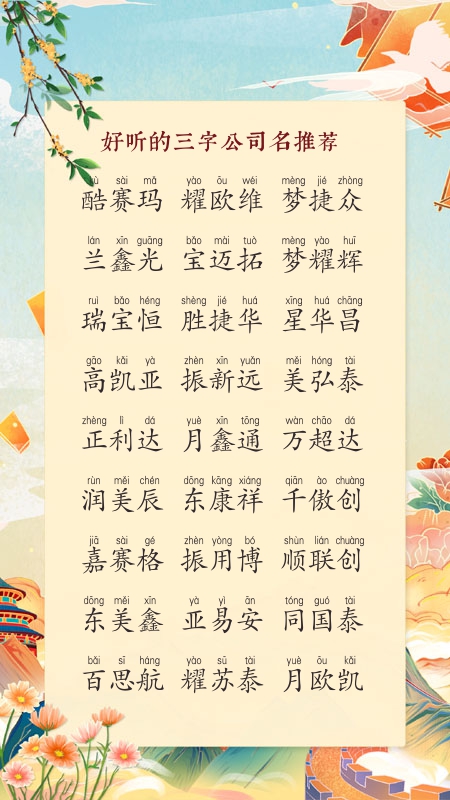 好听的三字公司名推荐
kù sài mǎ yào ōu wéi mèng jié zhòng
酷赛玛 耀欧维 梦捷众
lán xīn guāng bǎo mài tuò mèng yào huī
兰鑫光 宝迈拓 梦耀辉
ruì bǎo héng shèng jié huá xīng huá chāng
瑞宝恒 胜捷华 星华昌
gāo kǎi yà zhèn xīn yuǎn měi hóng tài
高凯亚 振新远 美弘泰
zhèng lì dá yuè xīn tōng wàn chāo dá
正利达 月鑫通 万超达
rùn měi chén dōng kāng xiáng qiān ào chuàng
润美辰 东康祥 千傲创
jiā sài gé zhèn yòng bó shùn lián chuàng
嘉赛格 振用博 顺联创
dōng měi xīn yà yì ān tóng guó tài
东美鑫 亚易安 同国泰
bǎi sī háng yào sū tài yuè ōu kǎi
百思航 耀苏泰 月欧凯